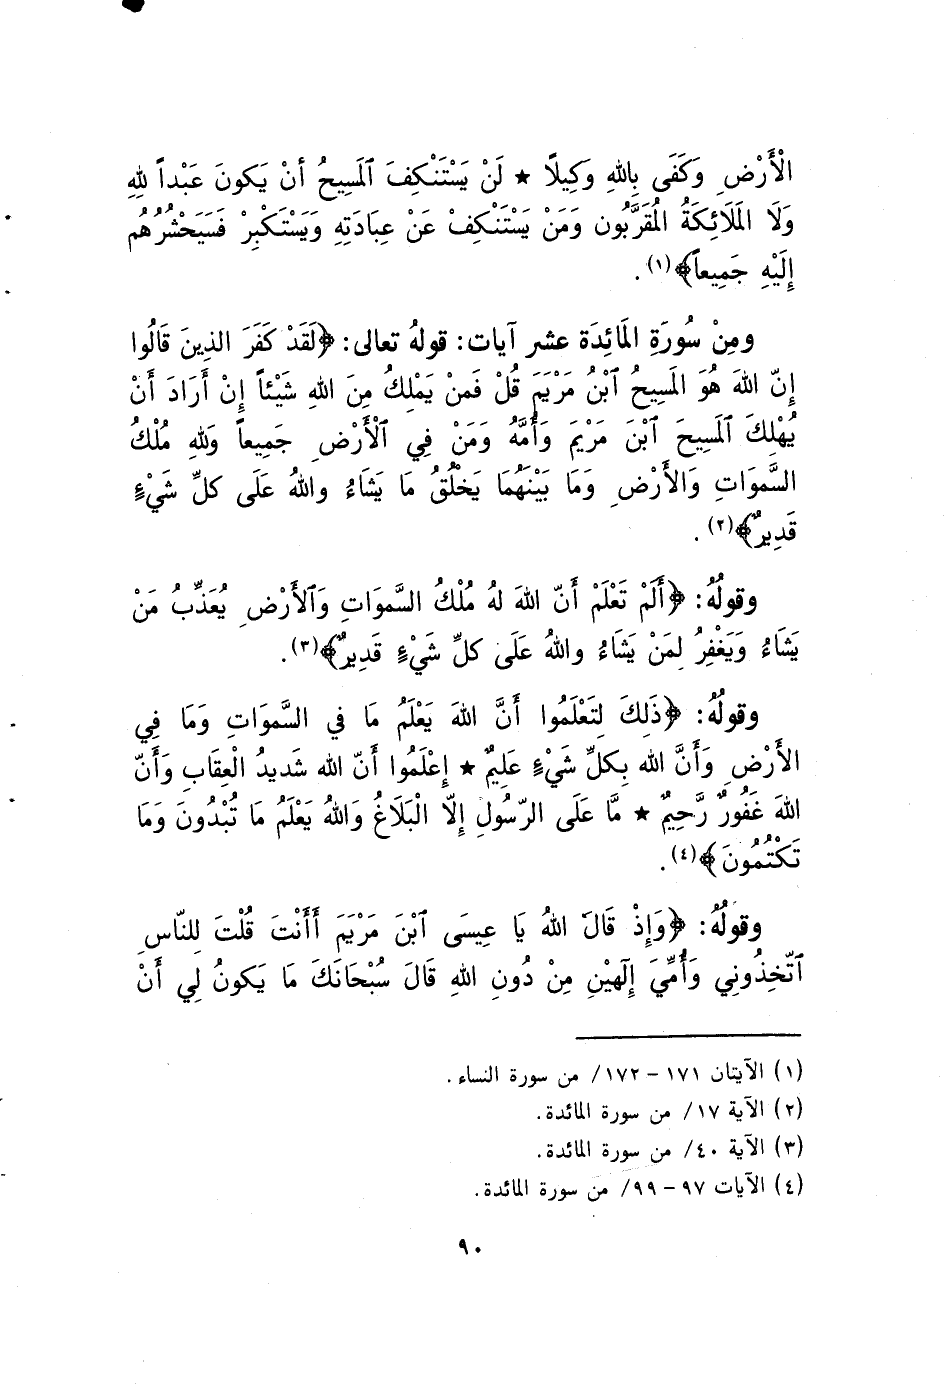 الْأَرْضِ وَكَفَى بِاللهِ وَكِيلًا ★ لَنْ يَسْتَنْكِفَ ٱلمَسِيحُ أنْ يَكونَ عَبْداً للهِ
وَلَا المَلَائِكَةُ المُقَرَّبُون وَمَنْ يَسْتَنْكِفْ عَنْ عِبادَتِهِ وَيَسْتَكْبِرْ فَسَيَحْشُرُهُم
إِلَيْهِ جَمِيعاً﴾(١) .
ومِنْ سُورَةِ المَائِدَة عشر آيات: قولهُ تعالى: ﴿لَقَدْ كَفَرَ الذِينَ قَالُوا
إِنّ اللهَ هُوَ المَسِيحُ ٱبْنُ مَرْيَمَ قُلْ فَمنْ يَمْلِكُ مِنَ اللهِ شَيْئاً إِنْ أَرَادَ أَنْ
يُهْلِكَ ٱلمَسِيحَ ٱبْنَ مَرْيَمَ وَأُمَّهُ وَمَنْ فِي ٱلْأَرْضِ جَمِيعاً وَللهِ مُلْكُ
السَّموَاتِ وَالأَرْضِ وَمَا بَيْنَهُمَا يَخْلُقُ مَا يَشَاءُ واللهُ عَلَى كلِّ شَيْءٍ
قَدِيرٌ﴾(٢) .
وقولُهُ: ﴿أَلَمْ تَعْلَمْ أَنّ اللهَ لهُ مُلْكُ السَّموَاتِ وَٱلأَرْضِ يُعَذِّبُ مَنْ
يَشَاءُ وَيَغْفِرُ لِمَنْ يَشَاءُ واللهُ عَلَى كلِّ شَيْءٍ قَدِيرٌ﴾(٣) .
وقولُهُ: ﴿ذَلِكَ لِتَعْلَمُوا أَنَّ اللهَ يَعْلَمُ مَا في السَّموَاتِ وَمَا فِي
الأَرْضِ وَأَنَّ الله بِكلِّ شَيْءٍ عَلِيمٌ ★ إعْلَمُوا أَنّ الله شَديدُ الْعِقَابِ وَأَنّ
اللهَ غَفُورٌ رَّحِيمٌ ★ مَّا عَلَى الرّسُولِ إِلّا الْبَلَاغُ وَاللهُ يَعْلَمُ مَا تُبْدُونَ وَمَا
تَكْتُمُونَ﴾(٤) .
وقولُهُ: ﴿وَإِذْ قَالَ اللهُ يَا عِيسَى ٱبْنَ مَرْيَمَ أَأَنْتَ قُلْتَ لِلنّاسِ
ٱتّخِذُونِي وَأُمِّيَ إِلَهَيْنِ مِنْ دُونِ اللهِ قَالَ سُبْحَانَكَ مَا يَكونُ لِي أَنْ
(١) الآيتان ١٧١ - ١٧٢/ من سورة النساء .
(٢) الآية ١٧/ من سورة المائدة .
(٣) الآية ٤٠/ من سورة المائدة .
(٤) الآيات ٩٧ - ٩٩/ من سورة المائدة .
٩٠